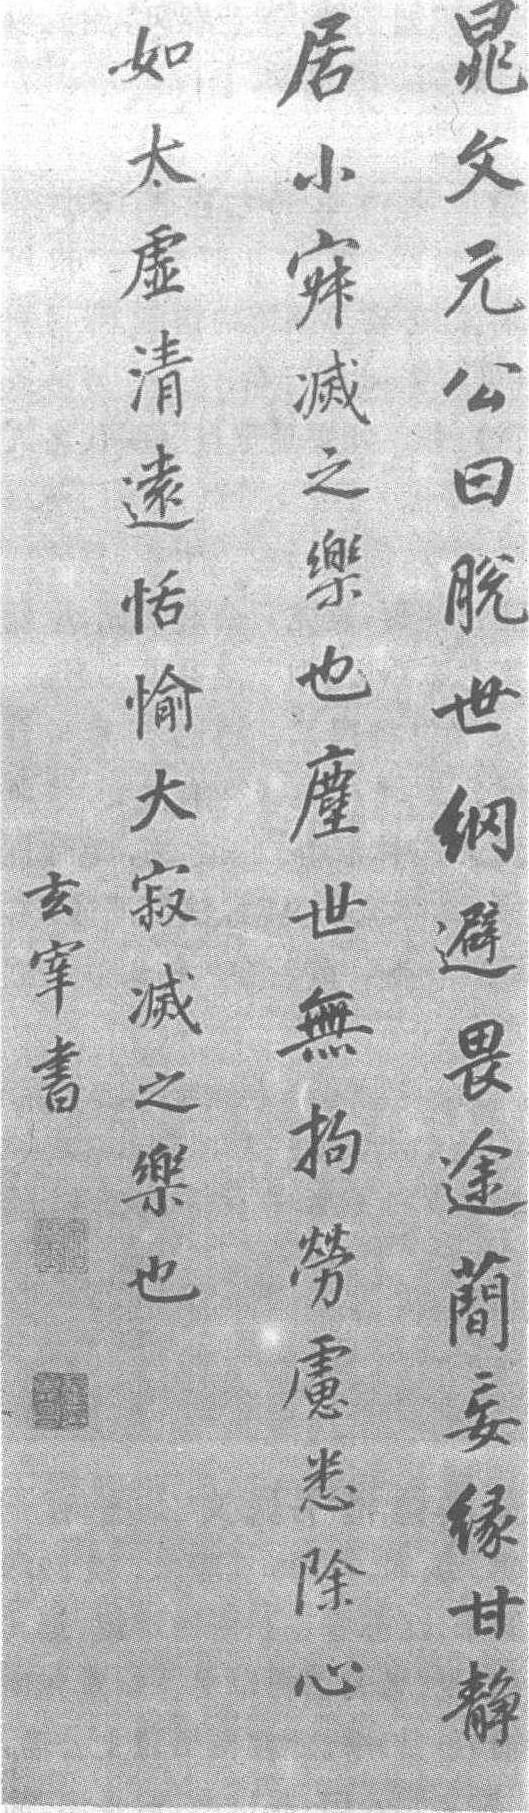 晁文元公曰脫世網避畏途蕳妄緣甘靜
居小㝥滅之樂也塵世無拘勞慮悉除心
如太虛清遠恬愉大寂滅之樂也
玄宰書